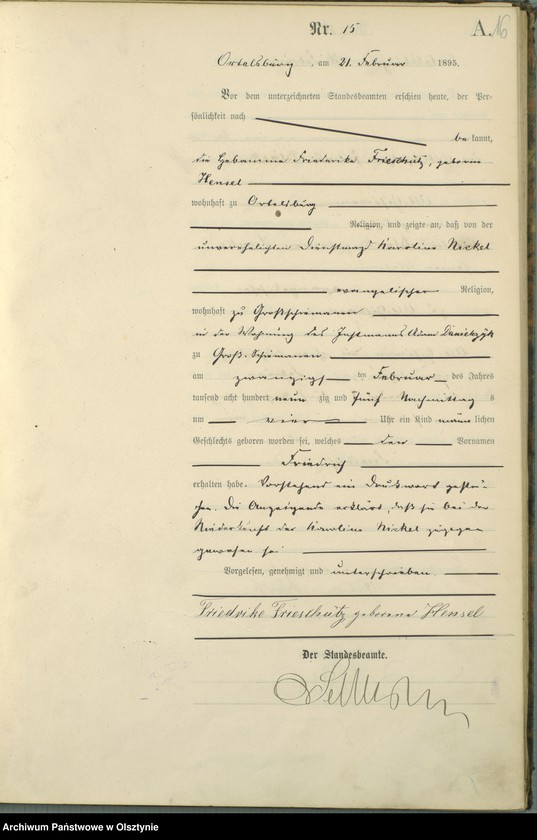 Nr. 15
A.
16
Ortelsburg, am 21. Februar 1895.
Vor dem unterzeichneten Standesbeamten erschien heute, der Per-
sönlichkeit nach
bekannt,
die Hebamme Friederike Frieschutz, geborene
Hensel
wohnhaft zu Ortelsburg
Religion, und zeigte an, daß von der
unverehelichten Dienstmagd Karoline Nickel
evangelischer Religion,
wohnhaft zu Großschiemanen
in der Wohnung des Instmanns Adam
zu Groß-Schiemanen
am zwanzigsten Februar des Jahres
tausend acht hundert neunzig und fünf Nachmittags
um vier Uhr ein Kind männlichen
Geschlechts geboren worden sei, welches den Vornamen
Friedrich
erhalten habe. Vorstehend ein Druckwort gestri-
chen. Die Anzeigende erklärt, daß sie bei der
Niederkunft der Karoline Nickel zugegen
gewesen sei
Vorgelesen, genehmigt und unterschrieben.
Friedrike Frieschutz geborene Hensel
Der Standesbeamte.
Archiwum Państwowe w Olsztynie